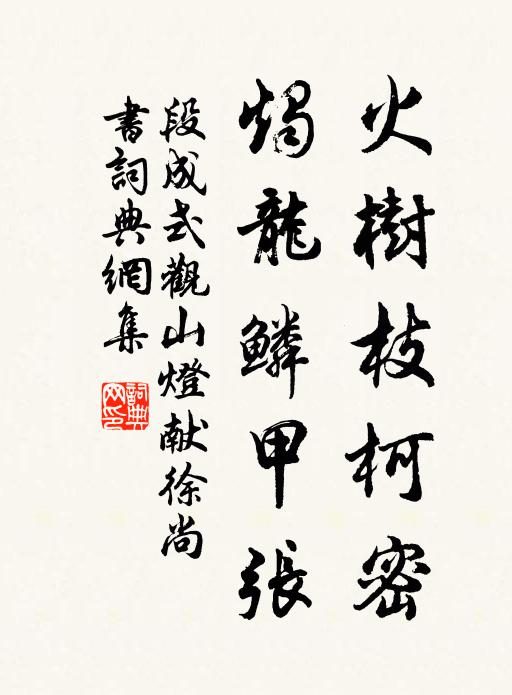 火樹枝柯密
燭龍鱗甲張
段成式觀山燈献徐尚
書詞典網集
詞典
网印